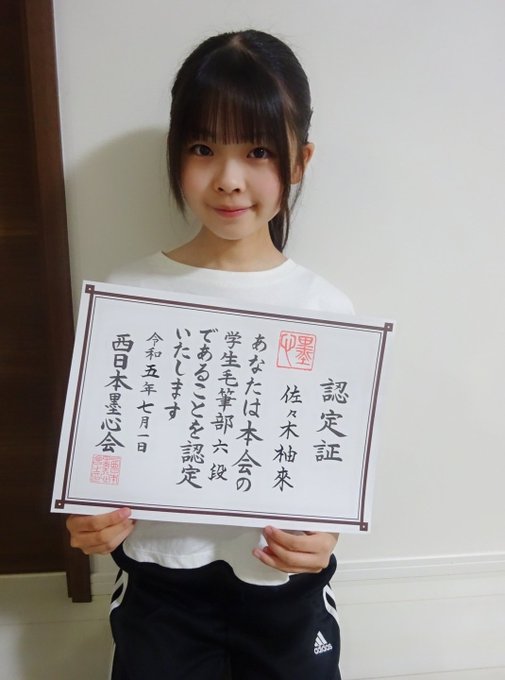 認定証
佐々木柚來
あなたは本会の
学生毛筆部六段
であることを認定
いたします
令和五年七月一日
西日本墨心会
adidas